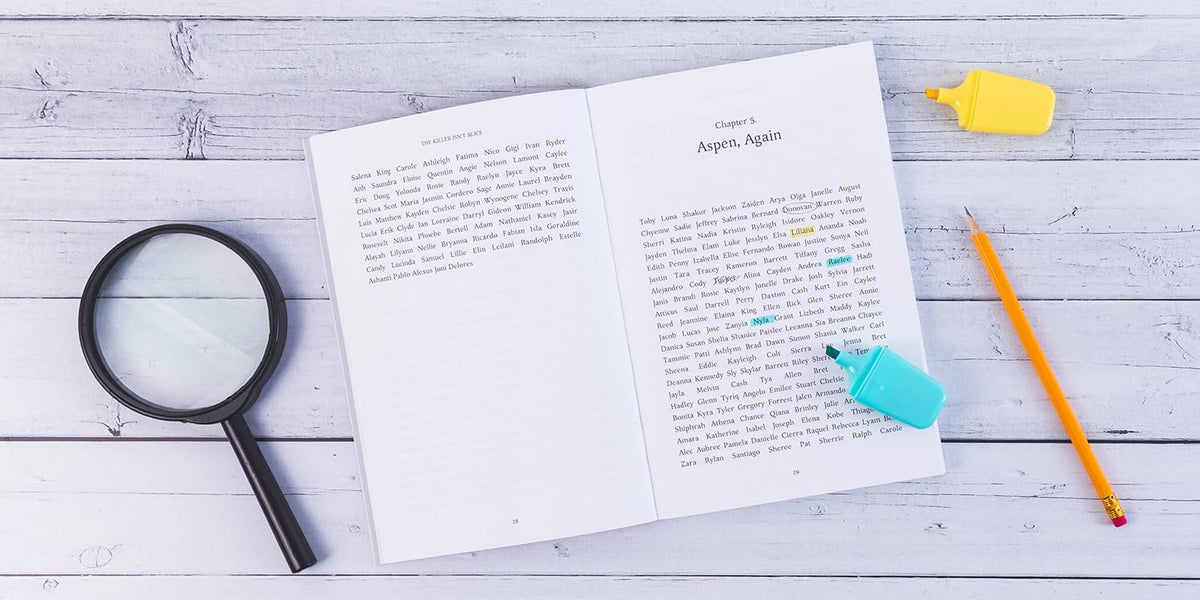 THE KILLER ISN'T ALICE
Salena King Carole Ashleigh Fatima Nico Gigi Ivan Ryder
Anb Saundra Eloise Quentin Angie Nelson Lamont Caylee
Eric Doug Yolonda Rosie Randy Raelyn Jayce Kyra Brett
Chelsea Scot Maria Jasmin Cordero Sage Annie Laurel Brayden
Luis Matthew Kayden Chelsie Robyn Wynogene Chelsey Travis
Lucia Erik Clyde Ian Lorraine Darryl Gideon William Kendrick
Rosevelt Nikita Phoebe Bertell Adam Nathaniel Kasey Jasir
Alayah Lilyanna Nellie Bryanna Ricardo Fabian Isla Geraldine
Candy Lucinda Samuel Lillie Elin Leilani Randolph Estelle
Ashanti Pablo Alexus Joni Delores
28
Chapter 5.
Aspen, Again
Toby Luna Shakur Jackson Zaiden Arya Olga Janelle August
Chyenne Sadie Jeffrey Sabrina Bernard Donovan Warren Ruby
Sherri Katina Nadia Kristin Ryleigh Isidore Oakley Vernon
Jayden Thelma Elam Luke Jesslyn Elsa Liliana Ananda Noah
Edith Penny Izabella Elise Fernando Rowan Justine Sonya Neil
Justin Tara Tracey Kameron Barrett Tiffany Gregg Sasha
Alejandro Cody Alina Cayden Andrea Raelee Hadi
Janis Brandi Rosie Kaytlyn Jonelle Drake Josh Sylvia Jarrett
Atticus Saul Darrell Perry Daxton Cash Kurt Ein Caylee
Reed Jeannine Elaina King Ellen Rick Glen Sheree Annie
Jacob Lucas Jose Zanyia Nyla Grant Lizbeth Maddy Kaylee
Danica Susan Shelia Shanice Paislee Leeanna Sia Breanna Chayce
Tammie Patti Ashlynn Brad Dawn Simon Shania Walker Carl
Sheena Eddie Kayleigh Colt Sierra Jenna Bret
Deanna Kennedy Sly Skylar Barrett Riley
Jayla Melvin Cash Tya Allen Bret
Hadley Glenn Tyriq Angelo Emilee Stuart Chelsie
Bonita Kyra Tyler Gregory Forrest Jalen Armando
Shiphrah Athena Chance Qiana Brinley Julie
Amara Katherine Isabel Joseph Elena Kobe
Alec Aubree Pamela Danielle Cierra Raquel Rebecca Lyam
Zara Rylan Santiago Sheree Pat Sherrie Ralph Carole
29